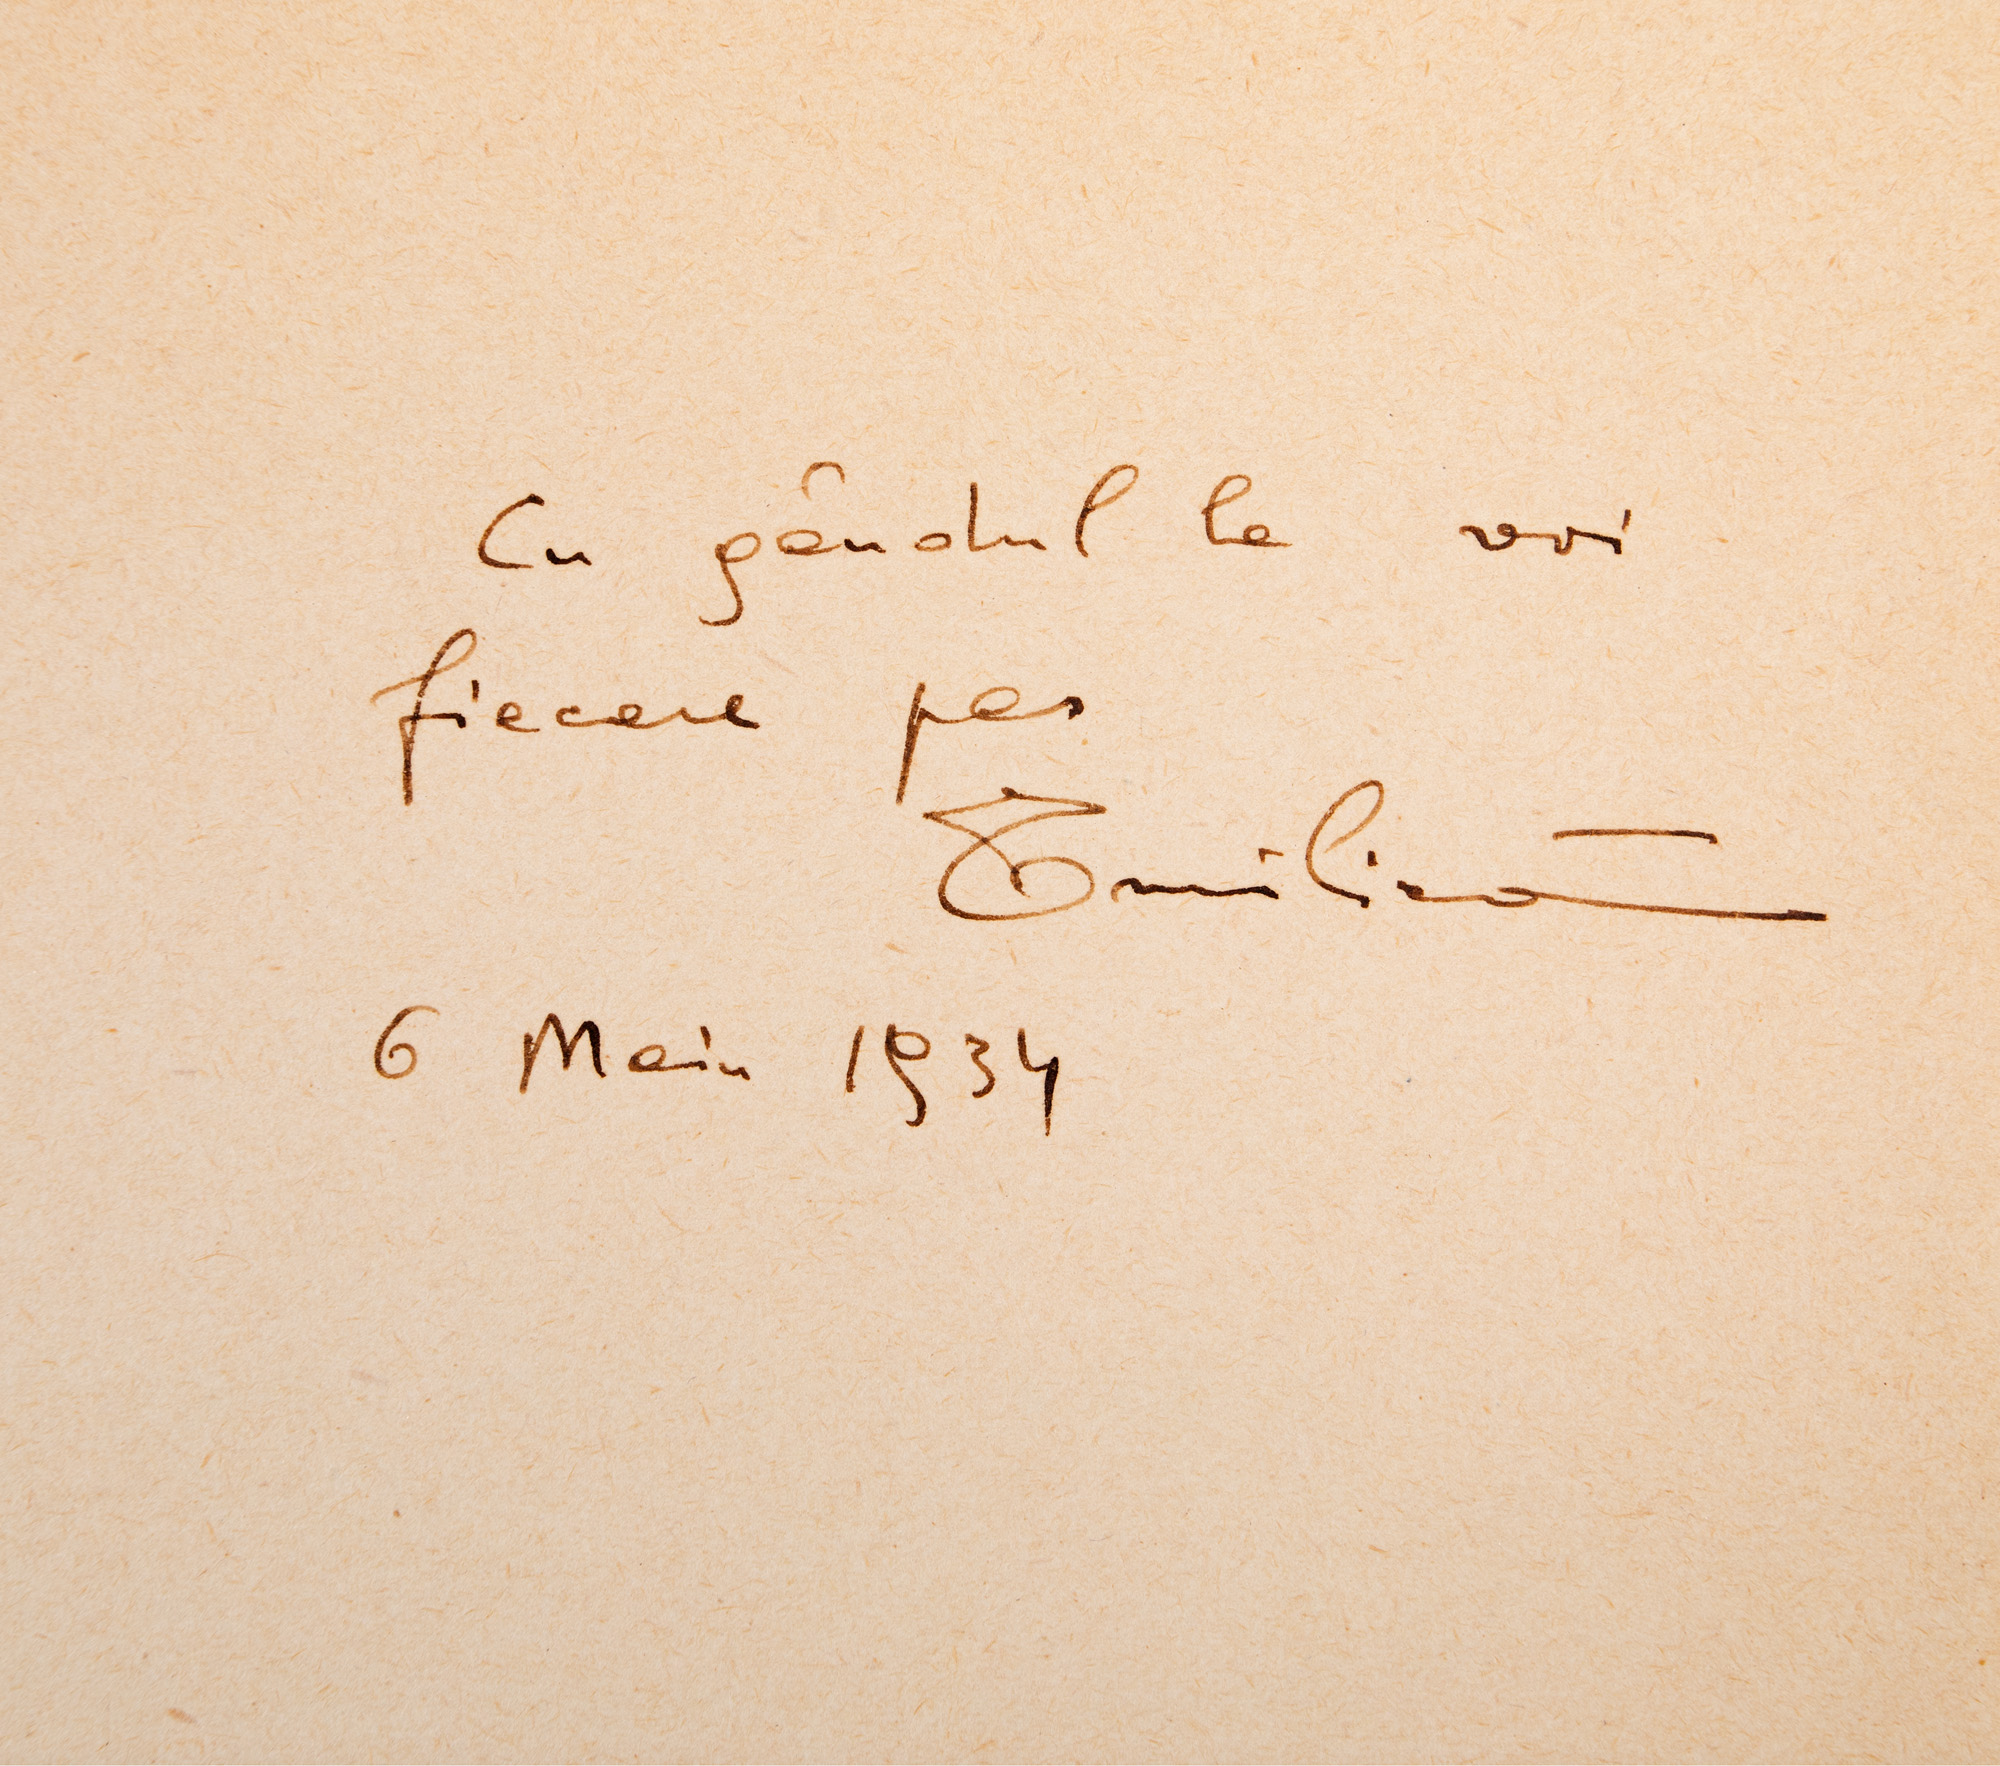 Cu gândul la voi
fiecare pas
Emilică
6 Maiu 1934